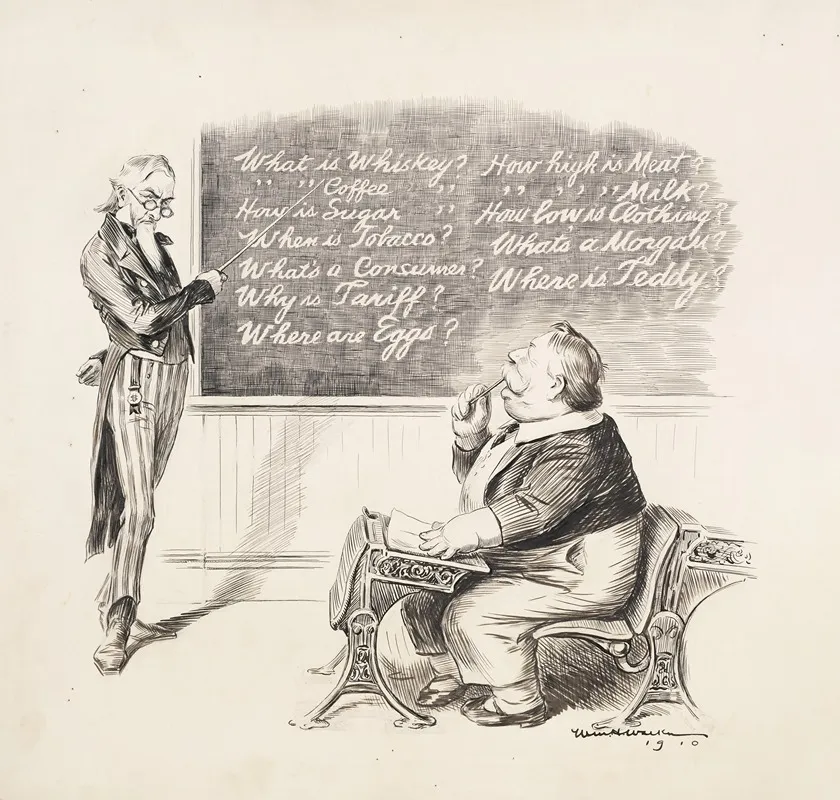 What is Whiskey?
" " Coffee "
How is Sugar "
When is Tobacco?
What's a Consumer?
Why is Tariff?
Where are Eggs?
How high is Meat?
" " " Milk?
How low is Clothing?
What's a Morgan?
Where is Teddy?
Wm H Walker
1910